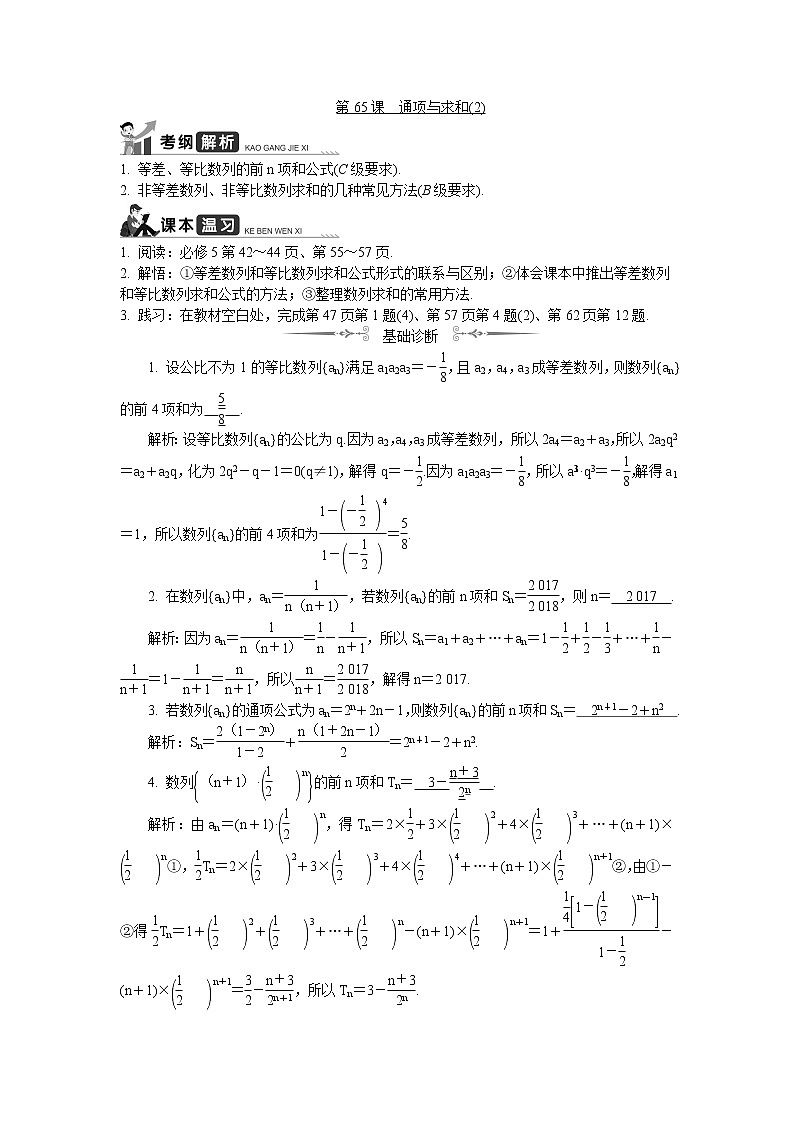 第 65 课　通项与求和(2)
考纲 解析 KAO GANG JIE XI
1. 等差、等比数列的前 n 项和公式(C 级要求).
2. 非等差数列、非等比数列求和的几种常见方法(B 级要求).
课本 温习 KE BEN WEN XI
1. 阅读：必修 5 第 42～44 页、第 55～57 页.
2. 解悟：①等差数列和等比数列求和公式形式的联系与区别；②体会课本中推出等差数列
和等比数列求和公式的方法；③整理数列求和的常用方法.
3. 践习：在教材空白处，完成第 47 页第 1 题(4)、第 57 页第 4 题(2)、第 62 页第 12 题.
基础诊断
1. 设公比不为 1 的等比数列{aₙ}满足 a₁a₂a₃＝－1/8，且 a₂，a₄，a₃ 成等差数列，则数列{aₙ}
的前 4 项和为 5/8 .
解析：设等比数列{aₙ}的公比为 q.因为 a₂,a₄,a₃ 成等差数列，所以 2a₄＝a₂＋a₃,所以 2a₂q²
＝a₂＋a₂q，化为 2q²－q－1＝0(q≠1)，解得 q＝－1/2.因为 a₁a₂a₃＝－1/8，所以 a₁³·q³＝－1/8,解得 a₁
＝1，所以数列{aₙ}的前 4 项和为 (1－(－1/2)⁴)/(1－(－1/2))＝5/8.
2. 在数列{aₙ}中，aₙ＝1/(n（n＋1）)，若数列{aₙ}的前 n 项和 Sₙ＝2 017/2 018，则 n＝ 2 017 .
解析：因为 aₙ＝1/(n（n＋1）)＝1/n－1/(n＋1)，所以 Sₙ＝a₁＋a₂＋…＋aₙ＝1－1/2＋1/2－1/3＋…＋1/n－
1/(n＋1)＝1－1/(n＋1)＝n/(n＋1)，所以 n/(n＋1)＝2 017/2 018，解得 n＝2 017.
3. 若数列{aₙ}的通项公式为 aₙ＝2ⁿ＋2n－1,则数列{aₙ}的前 n 项和 Sₙ＝ 2ⁿ⁺¹－2＋n² .
解析：Sₙ＝2（1－2ⁿ）/(1－2)＋n（1＋2n－1）/2＝2ⁿ⁺¹－2＋n².
4. 数列{（n＋1）·(1/2)ⁿ}的前 n 项和 Tₙ＝ 3－(n＋3)/2ⁿ .
解析：由 aₙ＝(n＋1)·(1/2)ⁿ，得 Tₙ＝2×1/2＋3×(1/2)²＋4×(1/2)³＋…＋(n＋1)×
(1/2)ⁿ①，1/2Tₙ＝2×(1/2)²＋3×(1/2)³＋4×(1/2)⁴＋…＋(n＋1)×(1/2)ⁿ⁺¹②,由①－
②得 1/2Tₙ＝1＋(1/2)²＋(1/2)³＋…＋(1/2)ⁿ－(n＋1)×(1/2)ⁿ⁺¹＝1＋(1/4[1－(1/2)ⁿ⁻¹])/(1－1/2)－
(n＋1)×(1/2)ⁿ⁺¹＝3/2－(n＋3)/2ⁿ⁺¹，所以 Tₙ＝3－(n＋3)/2ⁿ.